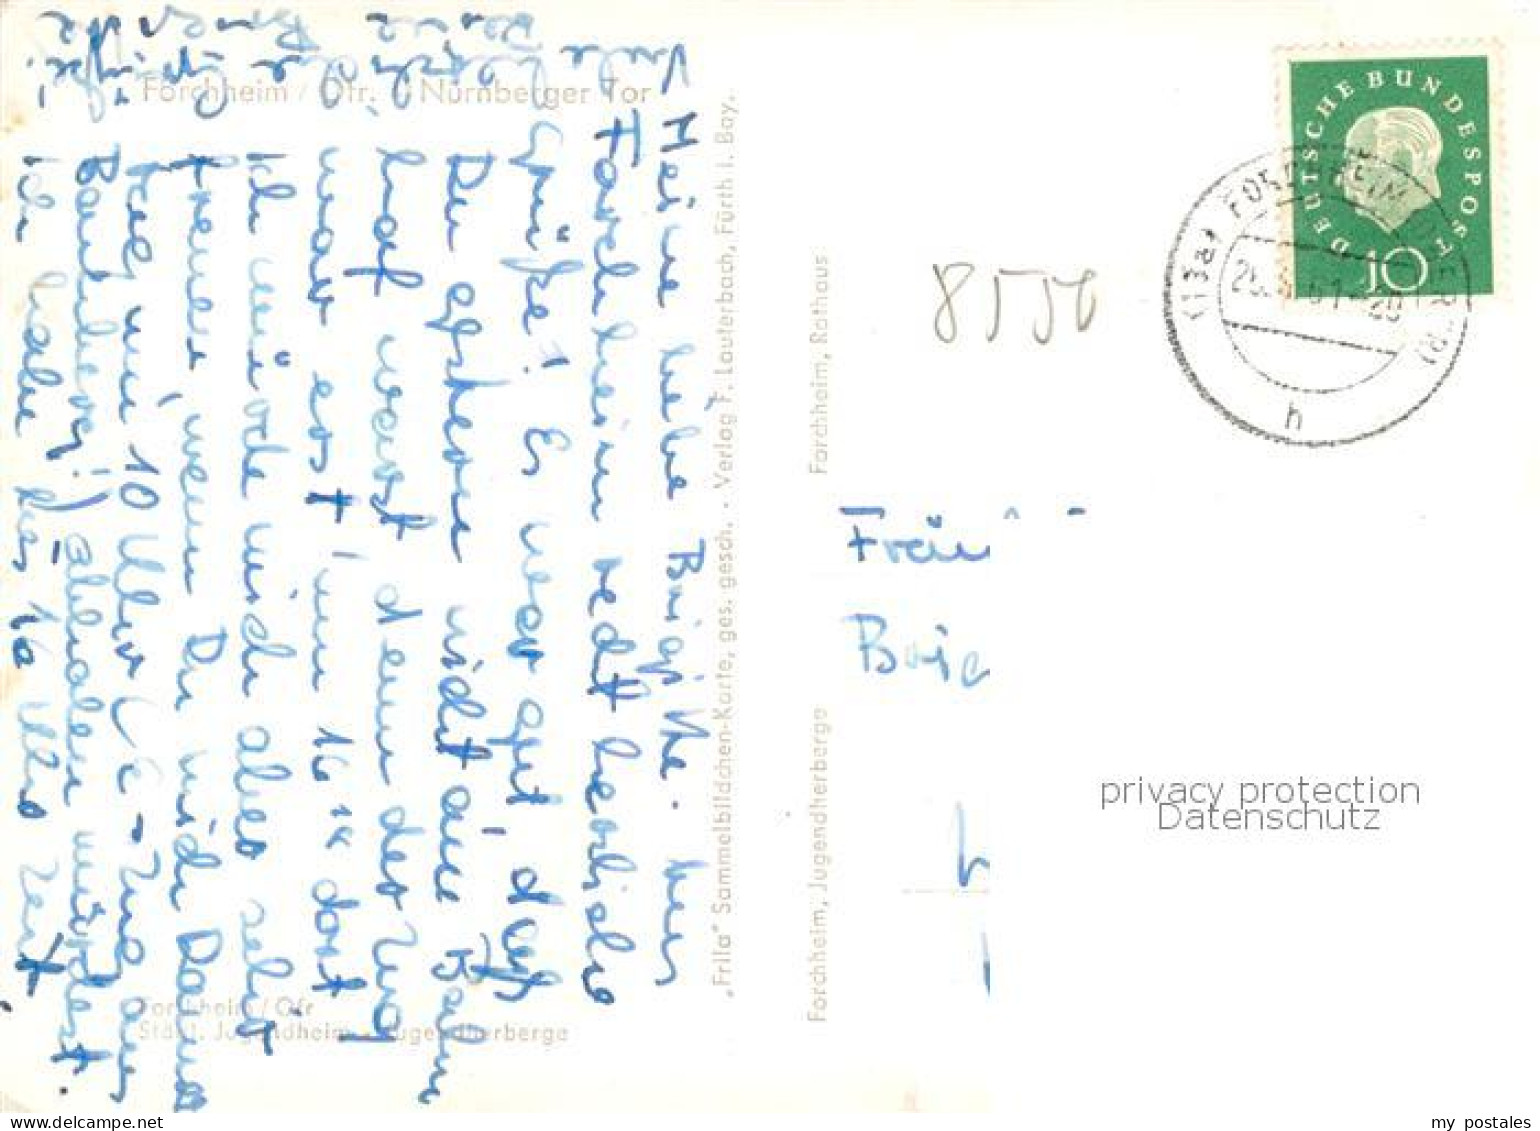 Forchheim / Ofr. Nürnberger Tor
Meine liebe Brigitte. Aus
Forchheim recht herzliche
Grüße! Es war gut, daß
Du gestern nicht am Bahn
hof warst denn der Zug
war erst um 16 14 dort
Ich würde mich aber sehr
freuen, wenn Du mich Dams
tag um 10 Uhr
Bahnhof abholen würdest.
Ich habe bis 16 Uhr Zeit
Viele
liebe
Grüße
Forchheim / Ofr
Städt. Jugendheim - Jugendherberge
„Frila" Sammelbildchen-Karte, ges. gesch. · Verlag F. Lauterbach, Fürth i. Bay.
Forchheim, Rathaus
Forchheim, Jugendherberge
DEUTSCHE BUNDESPOST
10
(13a) FORCHHEIM
h
8550
Fräu
Brig
privacy protection
Datenschutz
my postales